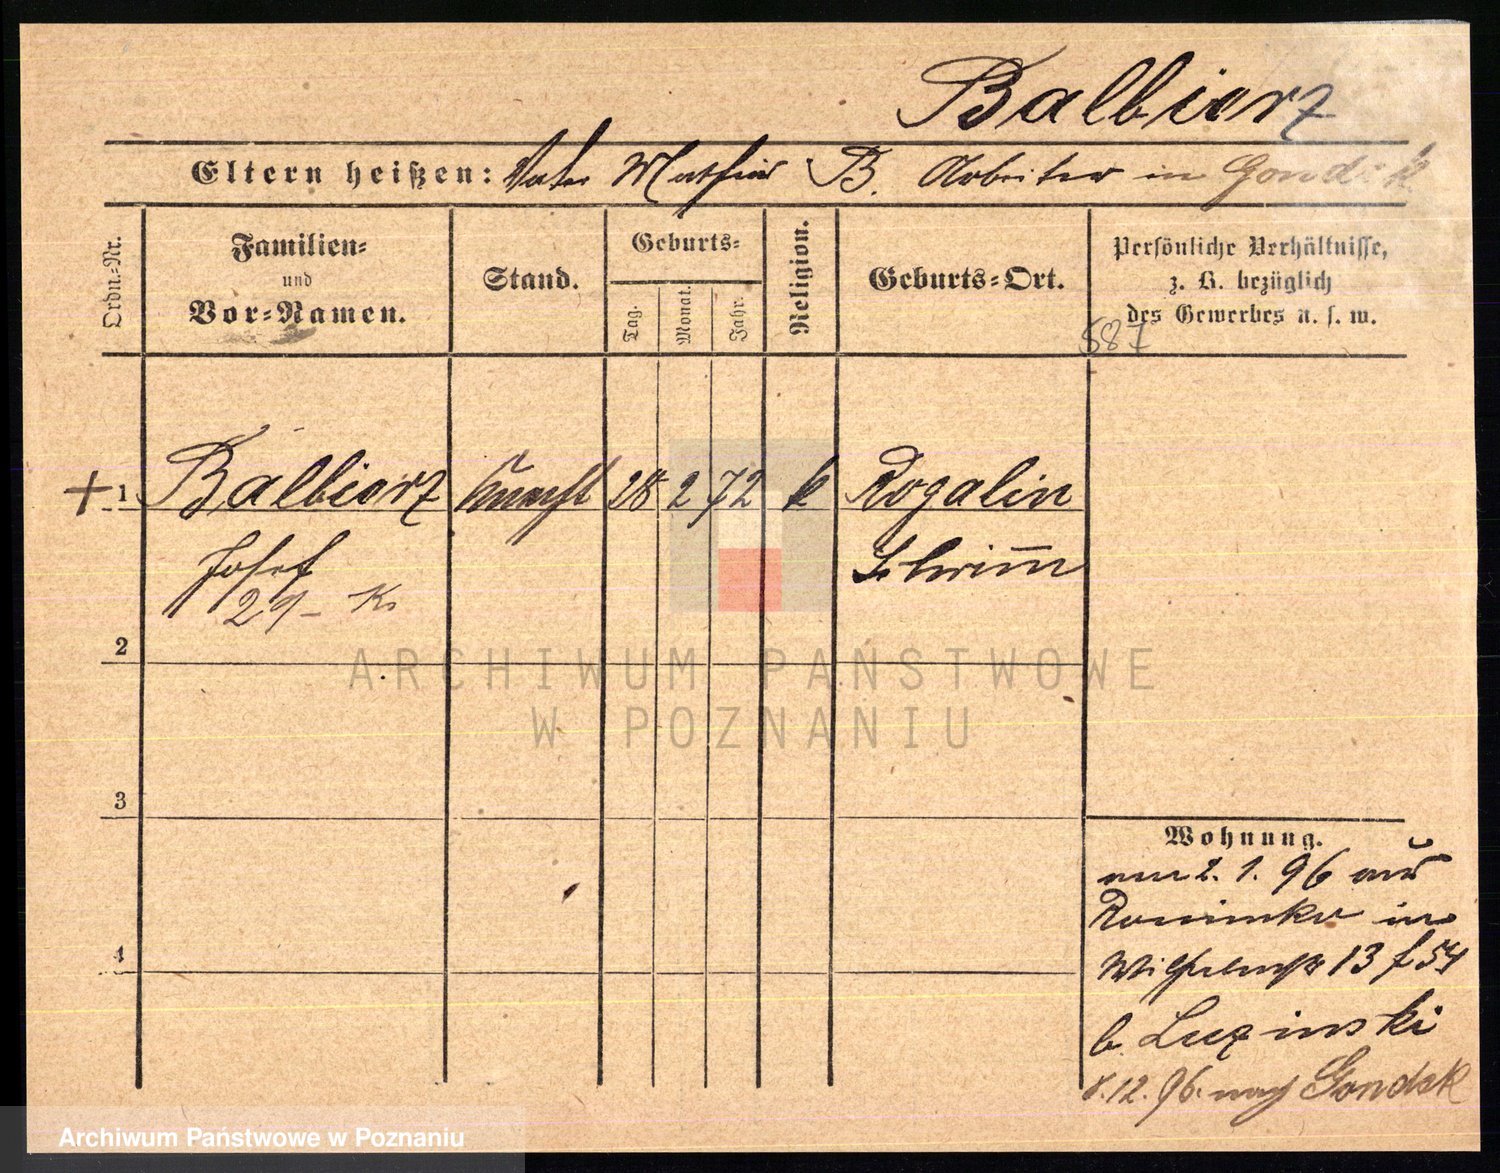 Balbierz
Eltern heißen: Vater Mathias B. Arbeiter in Gondek
Ordn.-Nr.
Familien-
und
Vor-Namen.
Stand.
Geburts-
Tag.
Monat.
Jahr.
Religion.
Geburts-Ort.
Persönliche Verhältnisse,
z. B. bezüglich
des Gewerbes u. s. w.
587
+ 1 Balbierz Knecht 28 2 72 k Rogalin
Josef Schrimm
29- K.
2
ARCHIWUM PAŃSTWOWE
W POZNANIU
3
Wohnung.
2. 1. 96 aus
in
4
Wilhelmstr 13 f 54
b. Luzinski
8.12.96. nach Gondek
Archiwum Państwowe w Poznaniu